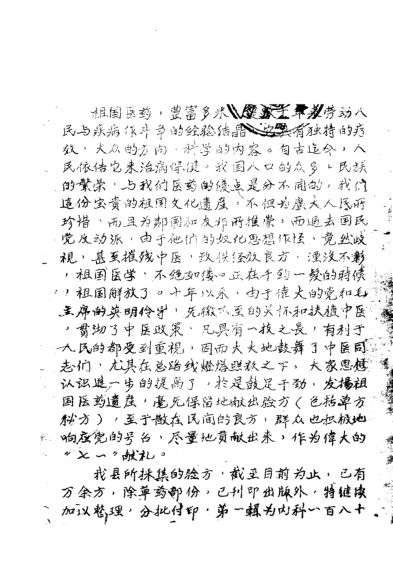 祖国医药，豐富多采，
民与疾病作斗争的经验结晶，具有独特的疗
效，大众的方向，科学的内容。自古迄今，人
民依估它来治病保健，我国人口的众多，民族
的繁荣，与我们医药的优点是分不同的，我们
这份宝贵的祖国文化遗產，不但为廣大人民所
珍惜，而且为鄰国和友邦所推崇，而过去国民
党反动派，由于他们的奴化思想作怪，竟然歧
視，甚至摧残中医，致供经效良方，湮没不彰
，祖国医学，不绝如缕。正在千钧一髮的時候
，祖国解放了。十年以来，由于偉大的党和毛
主席的英明伶导，无微不至的关怀和扶植中医
，貫沏了中医政策，凡具有一技之長，有利于
人民的都受到重視，因而大大地鼓舞了中医同
志们，尤其在总路线燈塔照放之下，大家思想
认识進一步的提高了，於是鼓足干劲，发揚祖
国医药遗產，毫无保留地献出验方（包括单方
秘方），至于散在民间的良方，群众也积极地
响应党的号台，尽量地贡献出来，作为偉大的
“七一”献礼。
我县所採集的验方，截至目前为止，已有
万余方，除草药部份，已刊印出版外，特继续
加议整理，分批付印，第一輯为内科一百八十